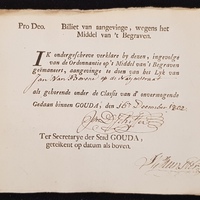 Pro Deo. Billiet van aangevinge, wegens het
Middel van 't Begraven.
IK ondergeschreve verklare by dezen, ingevolge
van de Ordonnantie op 't Middel van 't Begraven
geëmaneert, aangevinge te doen van het Lyk van
Jan van
als gehorende onder de Classis van d' onvermogende
Gedaan binnen GOUDA, den 16e December 1802
Ter Secretarye der Stad GOUDA,
getekent op datum als boven.